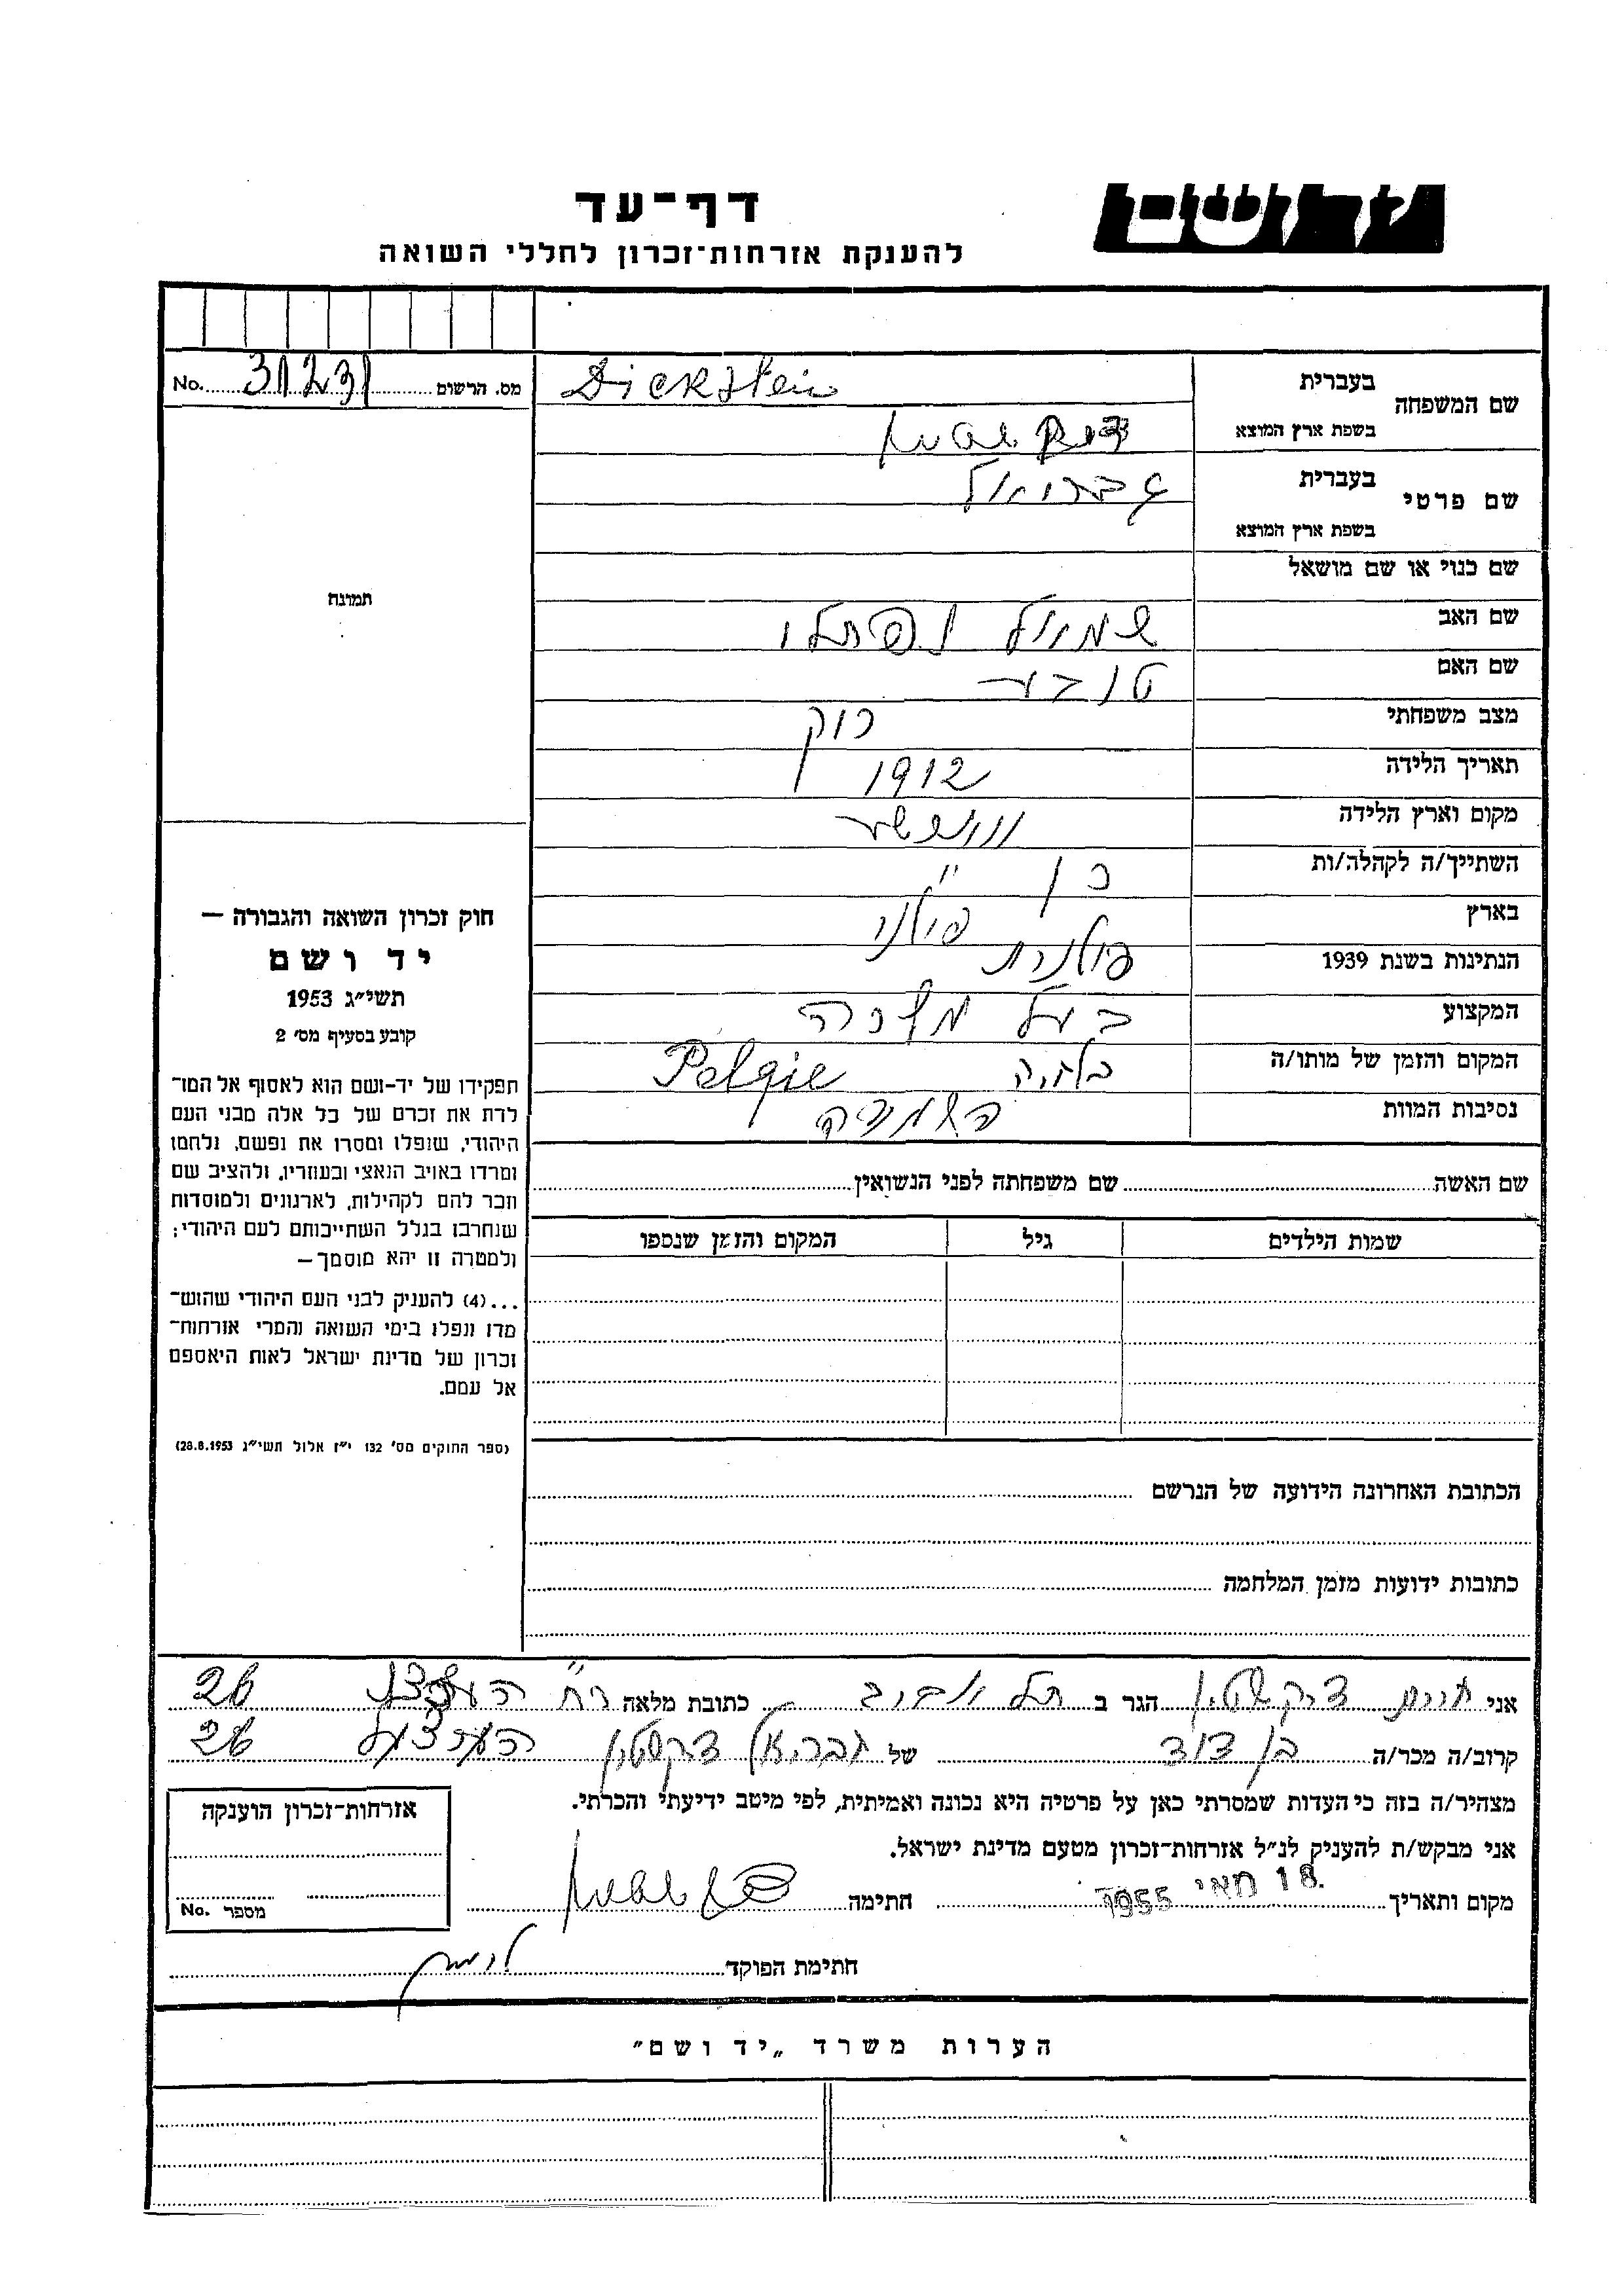 יד ושם
דף-עד
להענקת אזרחות-זכרון לחללי השואה
מס. הרשום 31231 No.
שם המשפחה
בעברית Dickstein
בשפת ארץ המוצא דיקשטיין
שם פרטי
בעברית גבריאל
בשפת ארץ המוצא
שם כנוי או שם מושאל
שם האב שמואל נפתלי
שם האם טובה
מצב משפחתי רוק
תאריך הלידה 1912
מקום וארץ הלידה
השתייך/ה לקהלה/ות כ נ״ל
בארץ פולני
הנתינות בשנת 1939 פולנית
המקצוע בעל
המקום והזמן של מותו/ה בלגיה Pelgie
נסיבות המוות השמדה
שם האשה שם משפחתה לפני הנשואין
שמות הילדים גיל המקום והזמן שנספו
הכתובת האחרונה הידועה של הנרשם
כתובות ידועות מזמן המלחמה
תמונה
חוק זכרון השואה והגבורה —
יד ושם
תשי״ג 1953
קובע בסעיף מס׳ 2
תפקידו של יד-ושם הוא לאסוף אל המו־
לדת את זכרם של כל אלה מבני העם
היהודי, שנפלו ומסרו את נפשם, נלחמו
ומרדו באויב הנאצי ובעוזריו, ולהציב שם
וזכר להם לקהילות, לארגונים ולמוסדות
שנחרבו בגלל השתייכותם לעם היהודי;
ולמטרה זו יהא מוסמך—
...(4) להעניק לבני העם היהודי שהוש־
מדו ונפלו בימי השואה והמרי אזרחות־
זכרון של מדינת ישראל לאות היאספם
אל עמם.
(ספר החוקים מס׳ 132 י״ז אלול תשי״ג 28.8.1953)
אני דיקשטין הגר ב תל אביב כתובת מלאה רח׳ 26
קרוב/ה מכר/ה בן דוד של גבריאל דיקשטין 26
מצהיר/ה בזה כי העדות שמסרתי כאן על פרטיה היא נכונה ואמיתית, לפי מיטב ידיעתי והכרתי.
אני מבקש/ת להעניק לנ״ל אזרחות-זכרון מטעם מדינת ישראל.
מקום ותאריך 18 מאי 1955 חתימה
חתימת הפוקד
אזרחות-זכרון הוענקה
מספר No.
הערות משרד „יד ושם״